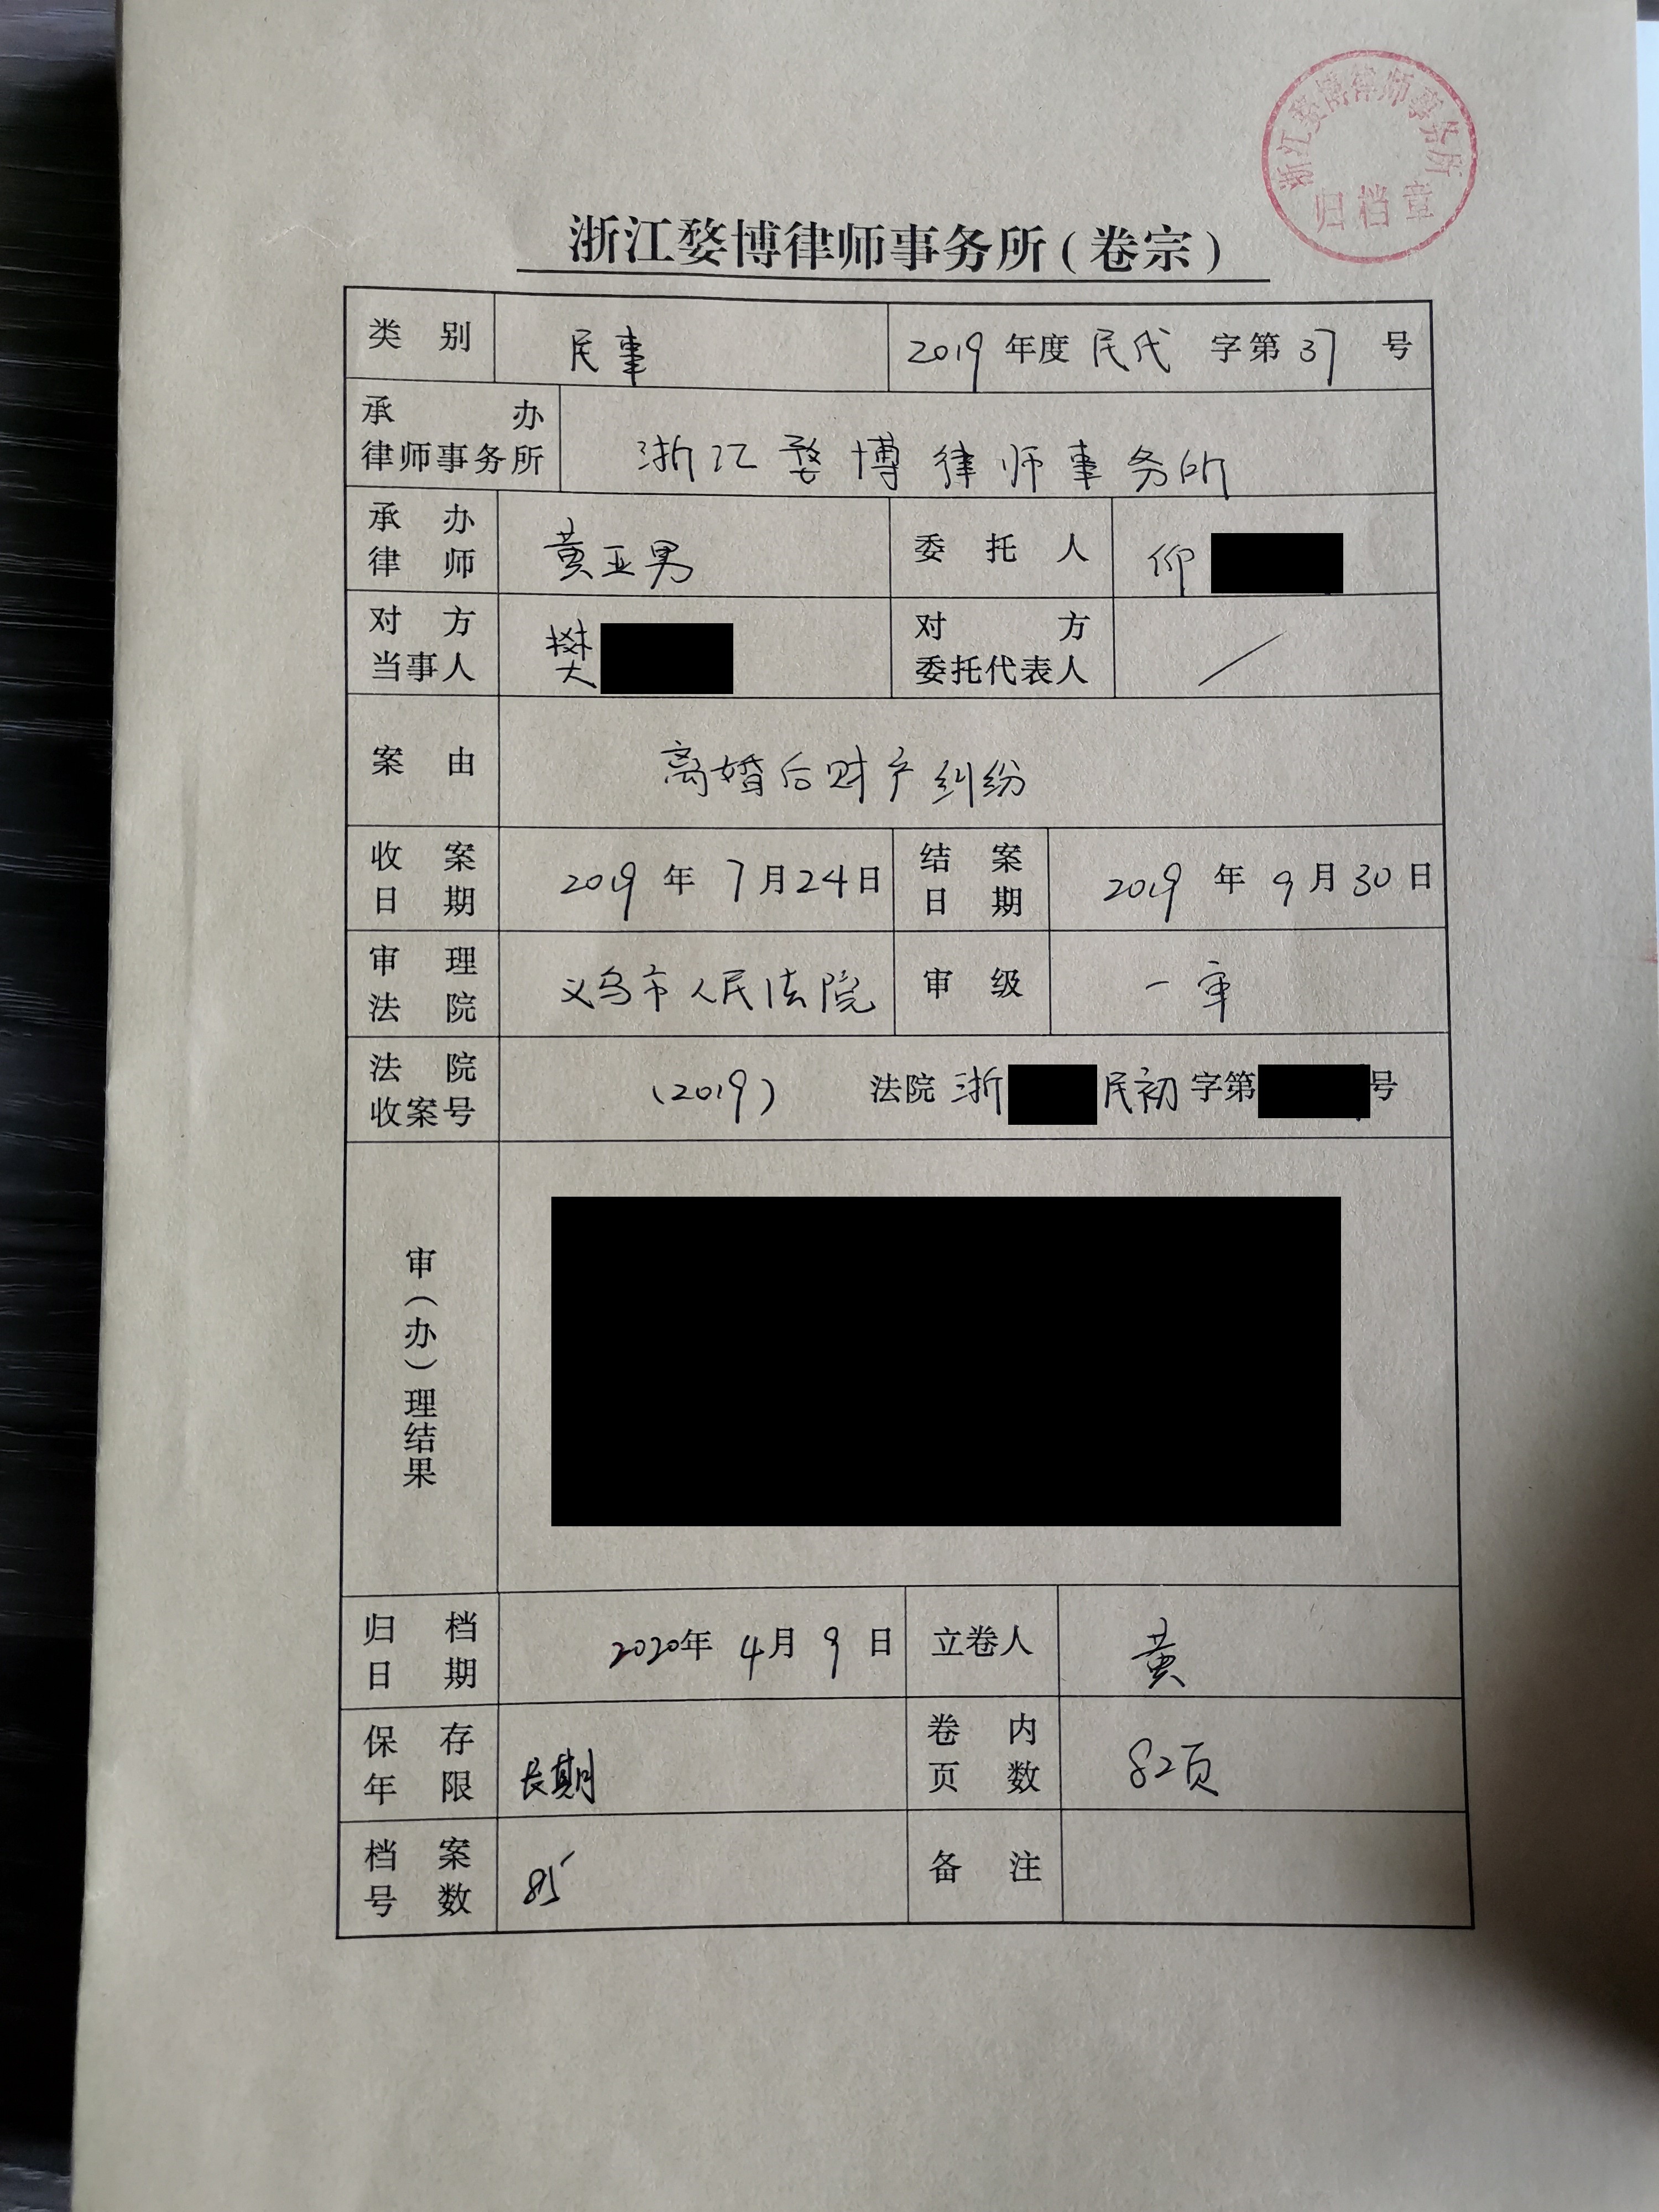 浙江婺博律师事务所
归档章
浙江婺博律师事务所(卷宗)
类别 民事 2019年度民代字第37号
承办
律师事务所 浙江婺博律师事务所
承办
律师 黄亚男 委托人 仰
对方
当事人 樊 对方
委托代表人 /
案由 离婚后财产纠纷
收案
日期 2019年7月24日 结案
日期 2019年9月30日
审理
法院 义乌市人民法院 审级 一审
法院
收案号 (2019) 法院 浙 民初 字第 号
审(办)理结果
归档
日期 2020年4月9日 立卷人 黄
保存
年限 长期 卷内
页数 82页
档案
号数 85 备注